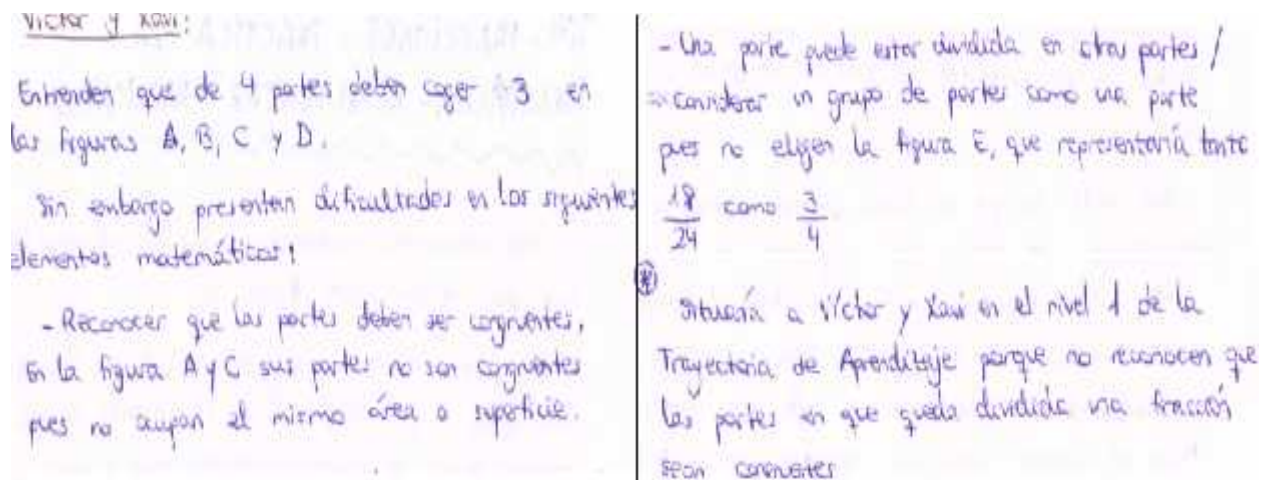 Víctor y Xavi:
Entienden que de 4 partes deben coger 3 en
las figuras A, B, C y D.
Sin embargo presentan dificultades en los siguientes
elementos matemáticos:
- Reconocer que las partes deben ser congruentes,
En la figura A y C sus partes no son congruentes
pues no ocupan el mismo área o superficie.
- Una parte puede estar dividida en otras partes /
considerar un grupo de partes como una parte
pues no eligen la figura E, que representaría tanto
18/24 como 3/4
*
Situaría a Víctor y Xavi en el nivel 1 de la
Trayectoria de Aprendizaje porque no reconocen que
las partes en que queda dividida una fracción
sean congruentes